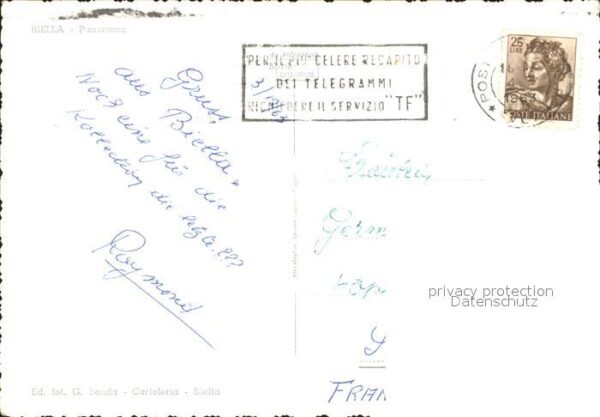 BIELLA - Panorama
PER IL PIÙ CELERE RECAPITO
DEI TELEGRAMMI
RICHIEDERE IL SERVIZIO "TF"
25
LIRE
POSTE ITALIANE
POST
Gruss
aus Biella.
Noch eine für die
Kollection, die letzte.???
Raymond
Fräulein
Germ
FRAN
privacy protection
Datenschutz
Ed. fot. G. Banda - Cartoleria - Biella